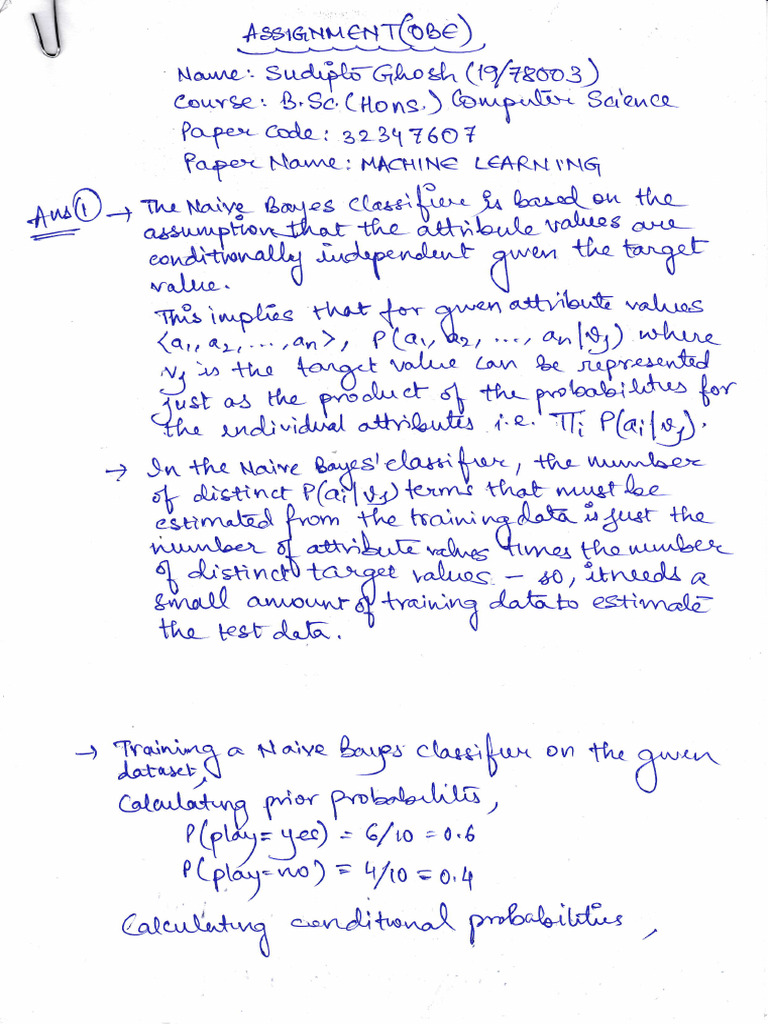 ASSIGNMENT(OBE)
Name: Sudipto Ghosh (19/78003)
Course: B.Sc. (Hons.) Computer Science
Paper Code: 32347607
Paper Name: MACHINE LEARNING
Ans ① → The Naive Bayes Classifier is based on the
assumption that the attribute values are
conditionally independent given the target
value.
This implies that for given attribute values
<a₁, a₂, ..., an>, P(a₁, a₂, ..., an|vj) where
vj is the target value can be represented
just as the product of the probabilities for
the individual attributes i.e. Πi P(ai|vj).
→ In the Naive Bayes' classifier, the number
of distinct P(ai|vj) terms that must be
estimated from the training data is just the
number of attribute values times the number
of distinct target values – so, it needs a
small amount of training data to estimate
the test data.
→ Training a Naive Bayes classifier on the given
dataset,
Calculating prior probabilities,
P(play=yes) = 6/10 = 0.6
P(play=no) = 4/10 = 0.4
Calculating conditional probabilities,